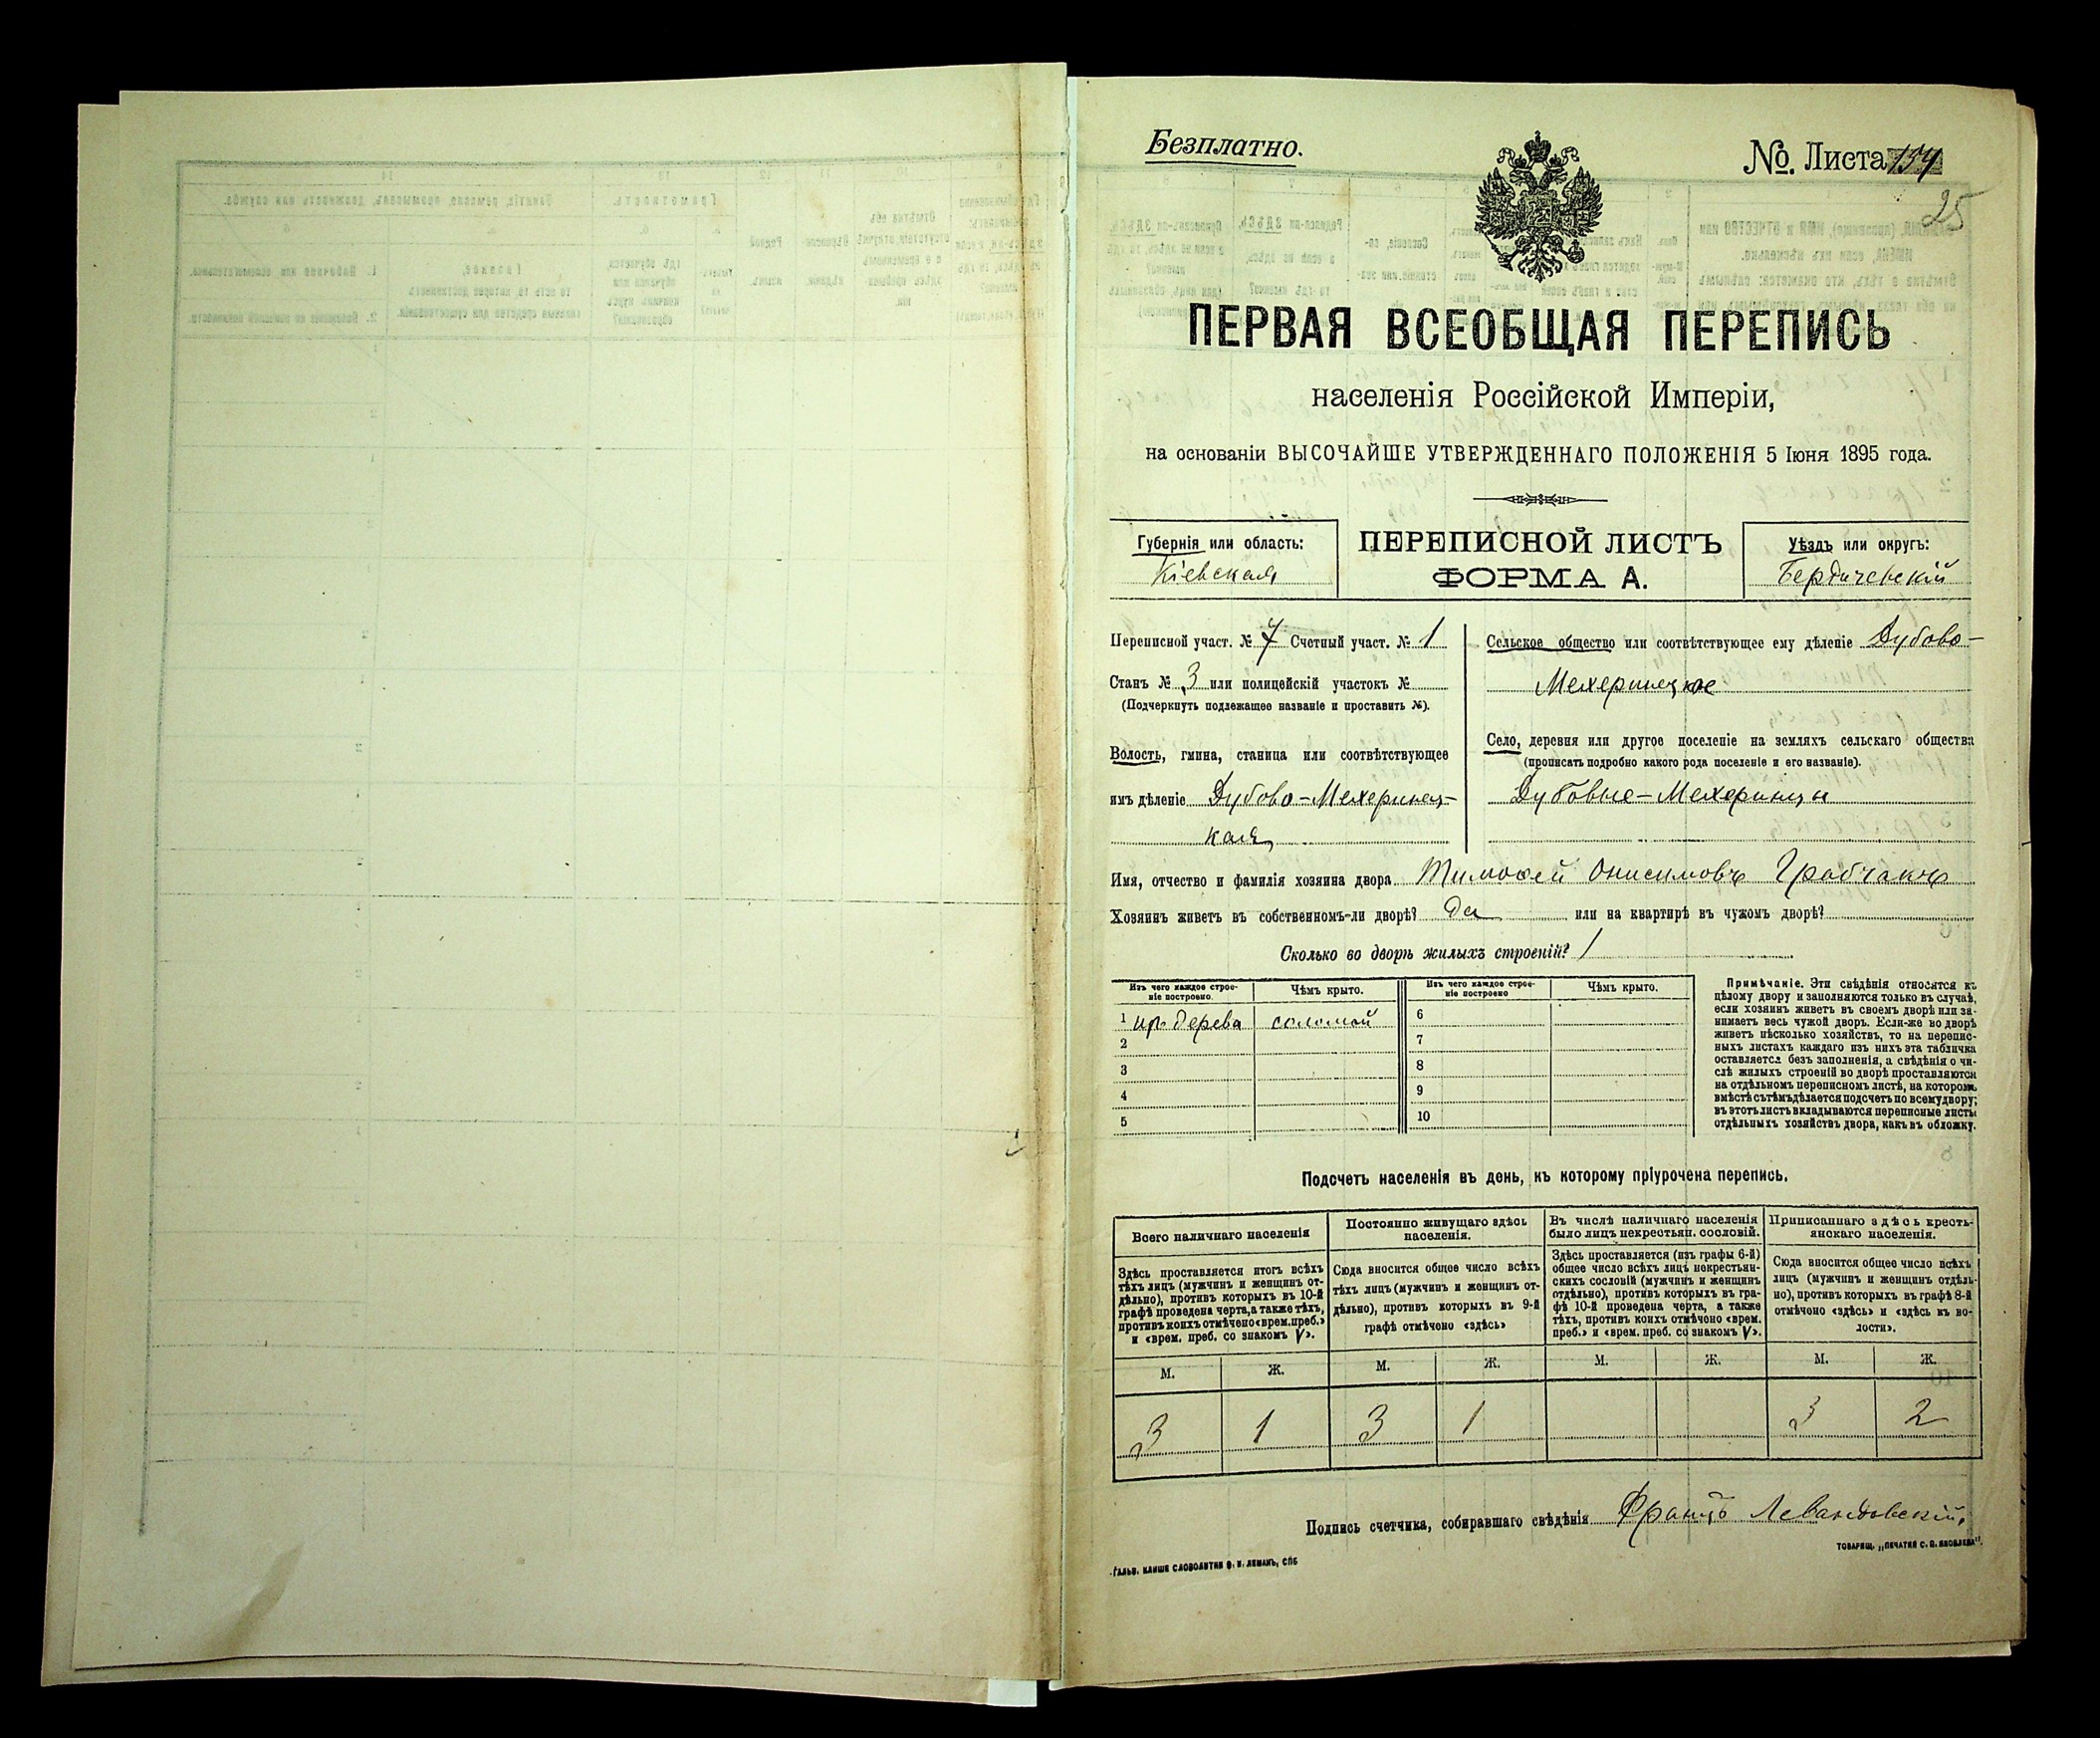 Безплатно.
№. Листа 154
25
ПЕРВАЯ ВСЕОБЩАЯ ПЕРЕПИСЬ
населенія Россійской Имперіи,
на основаніи ВЫСОЧАЙШЕ УТВЕРЖДЕННАГО ПОЛОЖЕНІЯ 5 Іюня 1895 года.
Губернія или область:
Кіевская
ПЕРЕПИСНОЙ ЛИСТЪ
ФОРМА А.
Уѣздъ или округъ:
Бердичевскій
Переписной участ. № 7 Счетный участ. № 1
Станъ № 3 или полицейскій участокъ №
(Подчеркнуть подлежащее названіе и проставить №).
Волость, гмина, станица или соотвѣтствующее
имъ дѣленіе Дубово-Мехеринец-
кая
Сельское общество или соотвѣтствующее ему дѣленіе Дубово-
Мехеринецкое
Село, деревня или другое поселеніе на земляхъ сельскаго общества
(прописать подробно какого рода поселеніе и его названіе).
Дубовые-Мехеринцы
Имя, отчество и фамилія хозяина двора Тимофей Онисимовъ Грабчакъ
Хозяинъ живетъ въ собственномъ-ли дворѣ? да или на квартирѣ въ чужомъ дворѣ?
Сколько во дворѣ жилыхъ строеній? 1
Изъ чего каждое строе-
ніе построено.
Чѣмъ крыто.
Изъ чего каждое строе-
ніе построено
Чѣмъ крыто.
1 изъ дерева соломой 6
2 7
3 8
4 9
5 10
Примѣчаніе. Эти свѣдѣнія относятся къ
цѣлому двору и заполняются только въ случаѣ,
если хозяинъ живетъ въ своемъ дворѣ или за-
нимаетъ весь чужой дворъ. Если-же во дворѣ
живетъ нѣсколько хозяйствъ, то на перепис-
ныхъ листахъ каждаго изъ нихъ эта табличка
оставляется безъ заполненія, а свѣдѣнія о чи-
слѣ жилыхъ строеній во дворѣ проставляются
на отдѣльномъ переписномъ листѣ, на которомъ
вмѣстѣ съ тѣмъ дѣлается подсчетъ по всему двору;
въ этотъ листъ вкладываются переписные листы
отдѣльныхъ хозяйствъ двора, какъ въ обложку.
Подсчетъ населенія въ день, къ которому пріурочена перепись.
Всего наличнаго населенія
Здѣсь проставляется итогъ всѣхъ
тѣхъ лицъ (мужчинъ и женщинъ от-
дѣльно), противъ которыхъ въ 10-й
графѣ проведена черта, а также тѣхъ,
противъ коихъ отмѣчено «врем. преб.»
и «врем. преб. со знакомъ V».
Постоянно живущаго здѣсь
населенія.
Сюда вносится общее число всѣхъ
тѣхъ лицъ (мужчинъ и женщинъ от-
дѣльно), противъ которыхъ въ 9-й
графѣ отмѣчено «здѣсь»
Въ числѣ наличнаго населенія
было лицъ некрестьян. сословій.
Здѣсь проставляется (изъ графы 6-й)
общее число всѣхъ лицъ некрестьян-
скихъ сословій (мужчинъ и женщинъ
отдѣльно), противъ которыхъ въ гра-
фѣ 10-й проведена черта, а также
тѣхъ, противъ коихъ отмѣчено «врем.
преб.» и «врем. преб. со знакомъ V».
Приписаннаго здѣсь кресть-
янскаго населенія.
Сюда вносится общее число всѣхъ
лицъ (мужчинъ и женщинъ отдѣль-
но), противъ которыхъ въ графѣ 8-й
отмѣчено «здѣсь» и «здѣсь къ во-
лости».
М. Ж. М. Ж. М. Ж. М. Ж.
3 1 3 1 3 2
Подпись счетчика, собиравшаго свѣдѣнія Францъ Левандовскій,
Гальв. клише словолитни О. И. Леманъ, СПБ
Товарищ. „Печатня С. П. Яковлева".